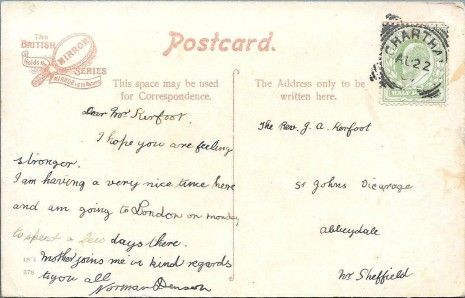 The
BRITISH
MIRROR
SERIES
Postcard.
CHARTHAM
AU 22
This space may be used
for Correspondence.
The Address only to be
written here.
Dear Mr Kerfoot.
I hope you are feeling
stronger.
I am having a very nice time here
and am going to London on monday
to spend a few days there.
Mother joins me in kind regards
to you all
Norman
The Rev. J. A. Kerfoot
St Johns Vicarage
Abbeydale
Nr Sheffield